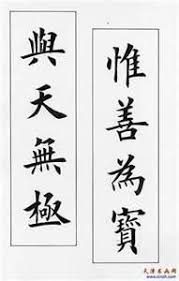 惟善為寶
與天無極
天津书画网